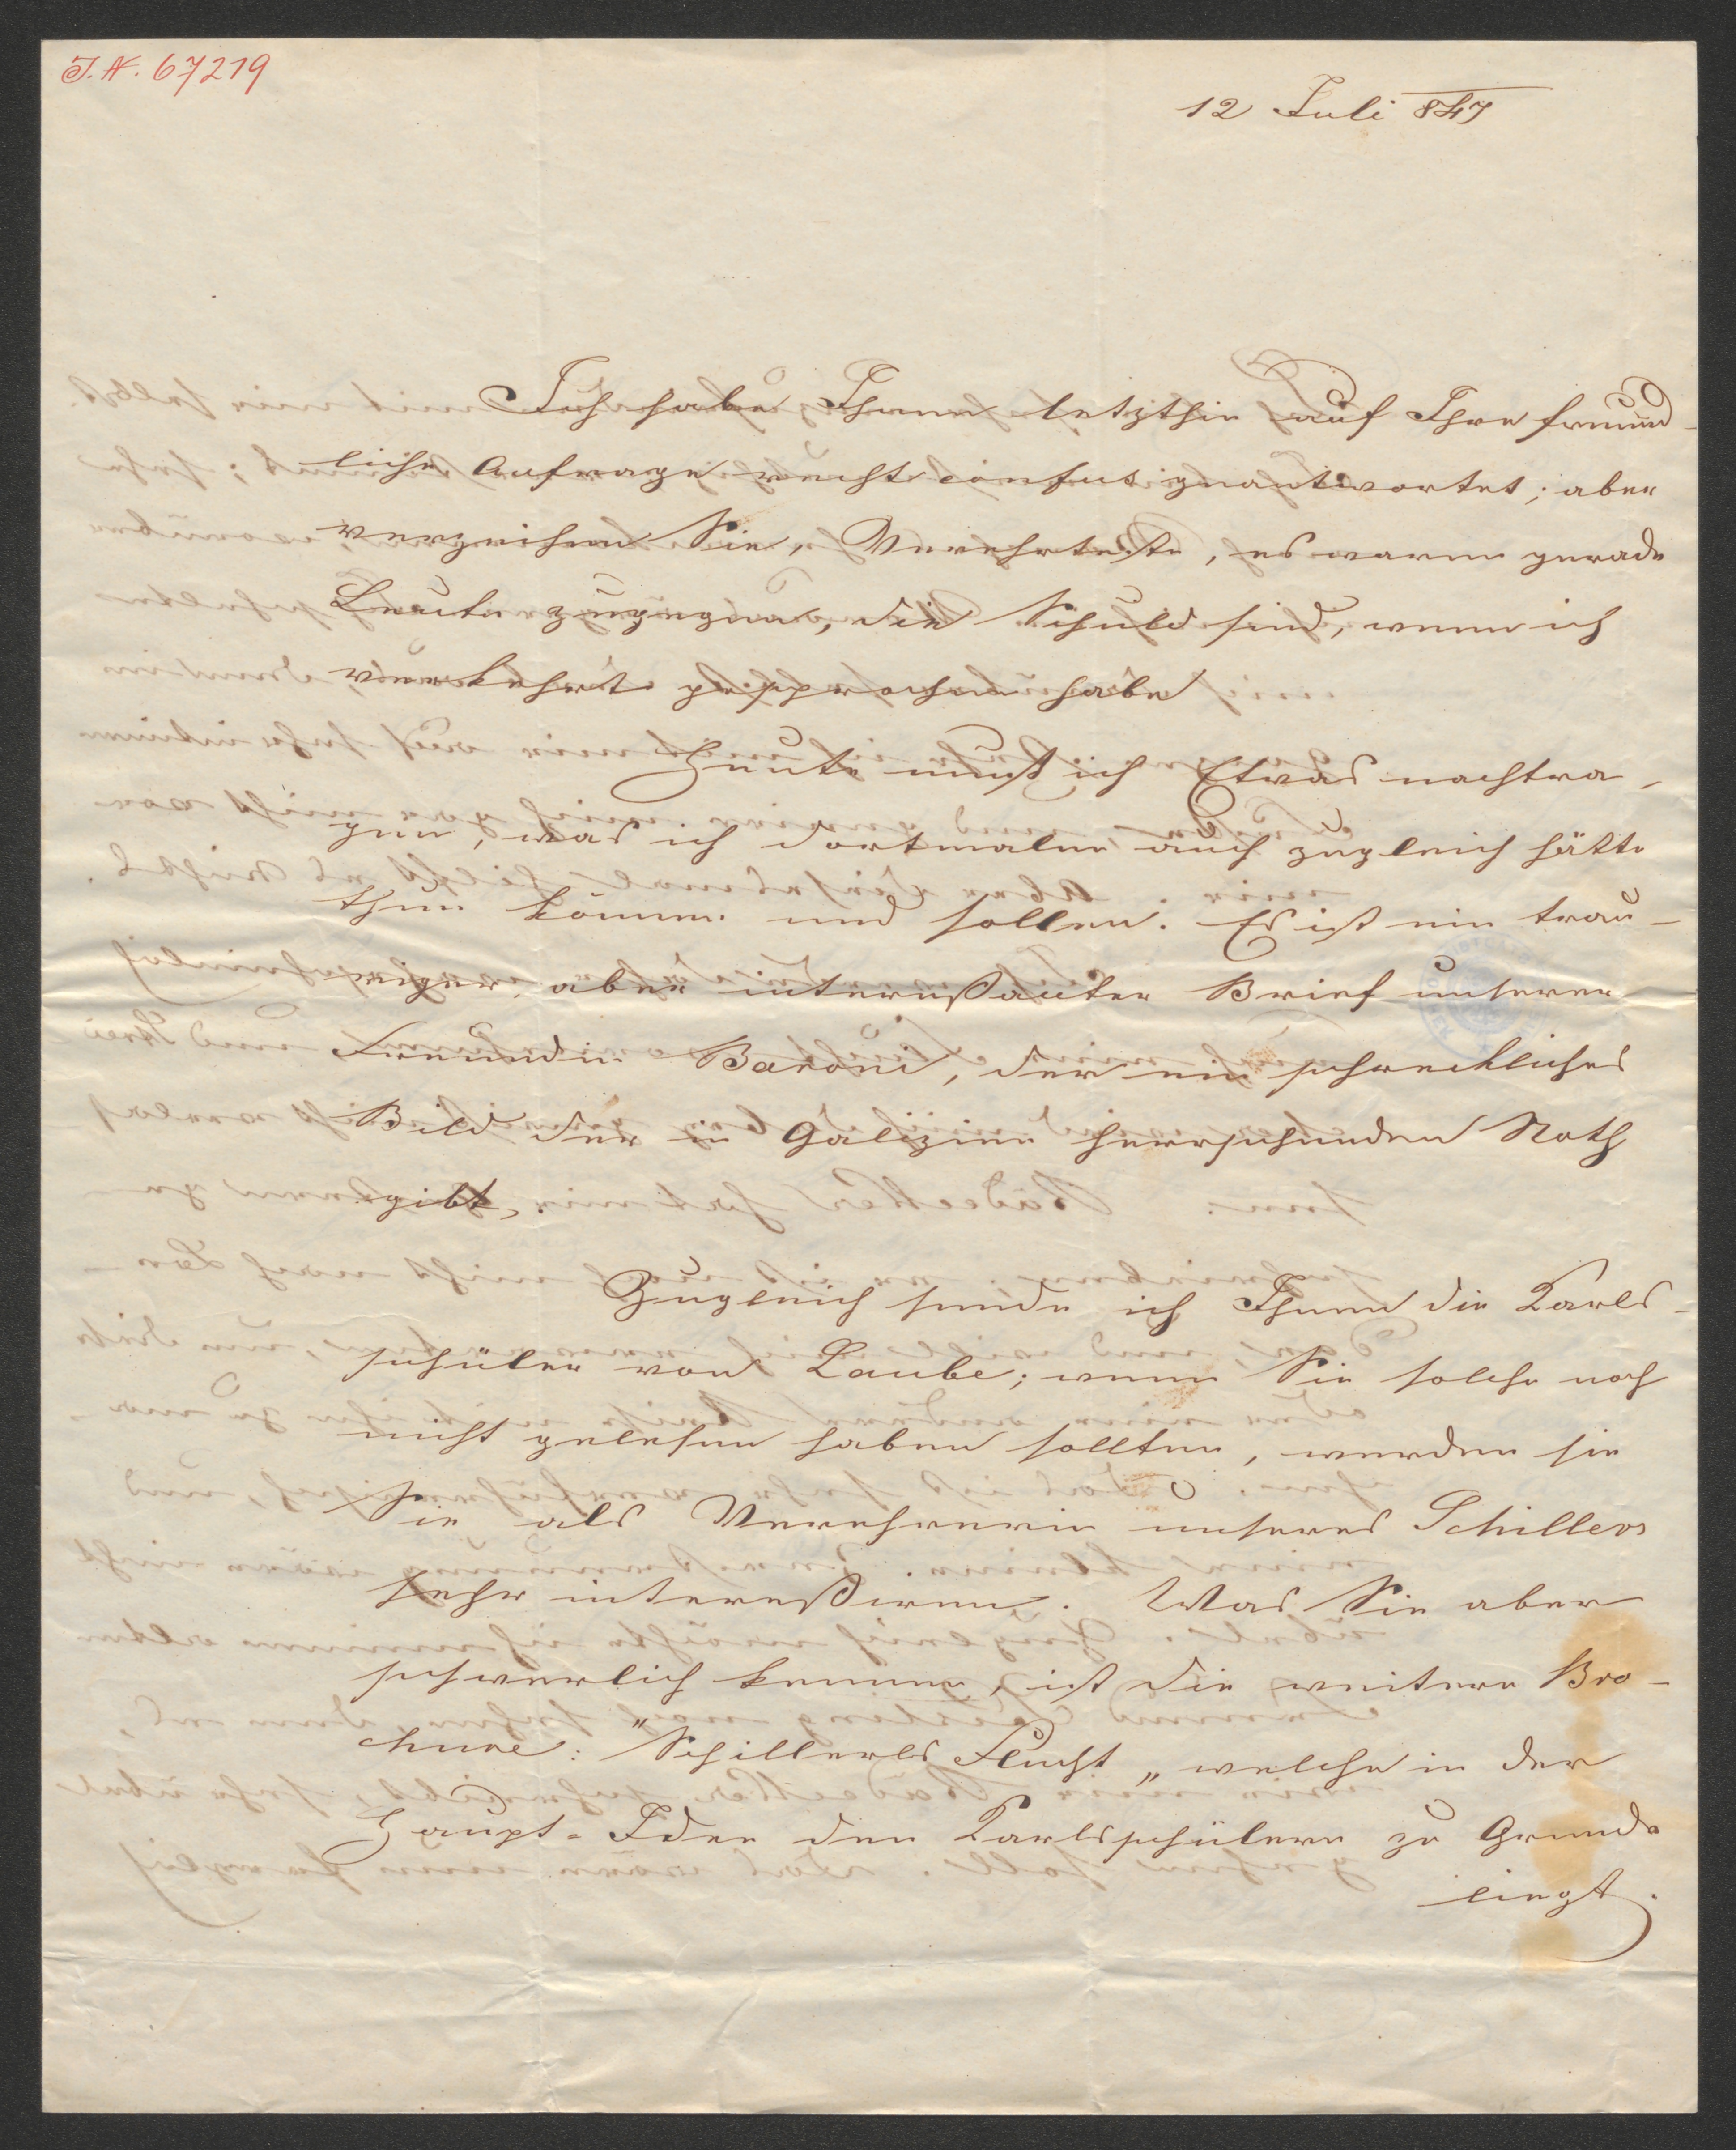 I.N. 67219
12 Juli 847
Ich habe Ihnen letzthin auf Ihre freund-
liche Anfrage recht confus geantwortet; aber
verzeihen Sie, Verehrteste, es waren gerade
Leute zugegen, die Schuld sind, wenn ich
verkehrt gesprochen habe
Heute muß ich Etwas nachtra-
gen, was ich dortmalen auch zugleich hätte
thun können und sollen. Es ist ein trau-
riger, aber interessanter Brief unserer
Freundin Baroni, der ein schreckliches
Bild der in Galizien herrschenden Noth
gibt.
Zugleich sende ich Ihnen die Karls-
schüler von Laube; wenn Sie solche noch
nicht gelesen haben sollten, werden sie
Sie als Verehrerin unseres Schillers
sehr interessiren. Was Sie aber
schwerlich kennen, ist die weitere Bro-
chure: "Schillers Flucht" welche in der
Haupt-Idee den Karlsschülern zu Grunde
liegt.